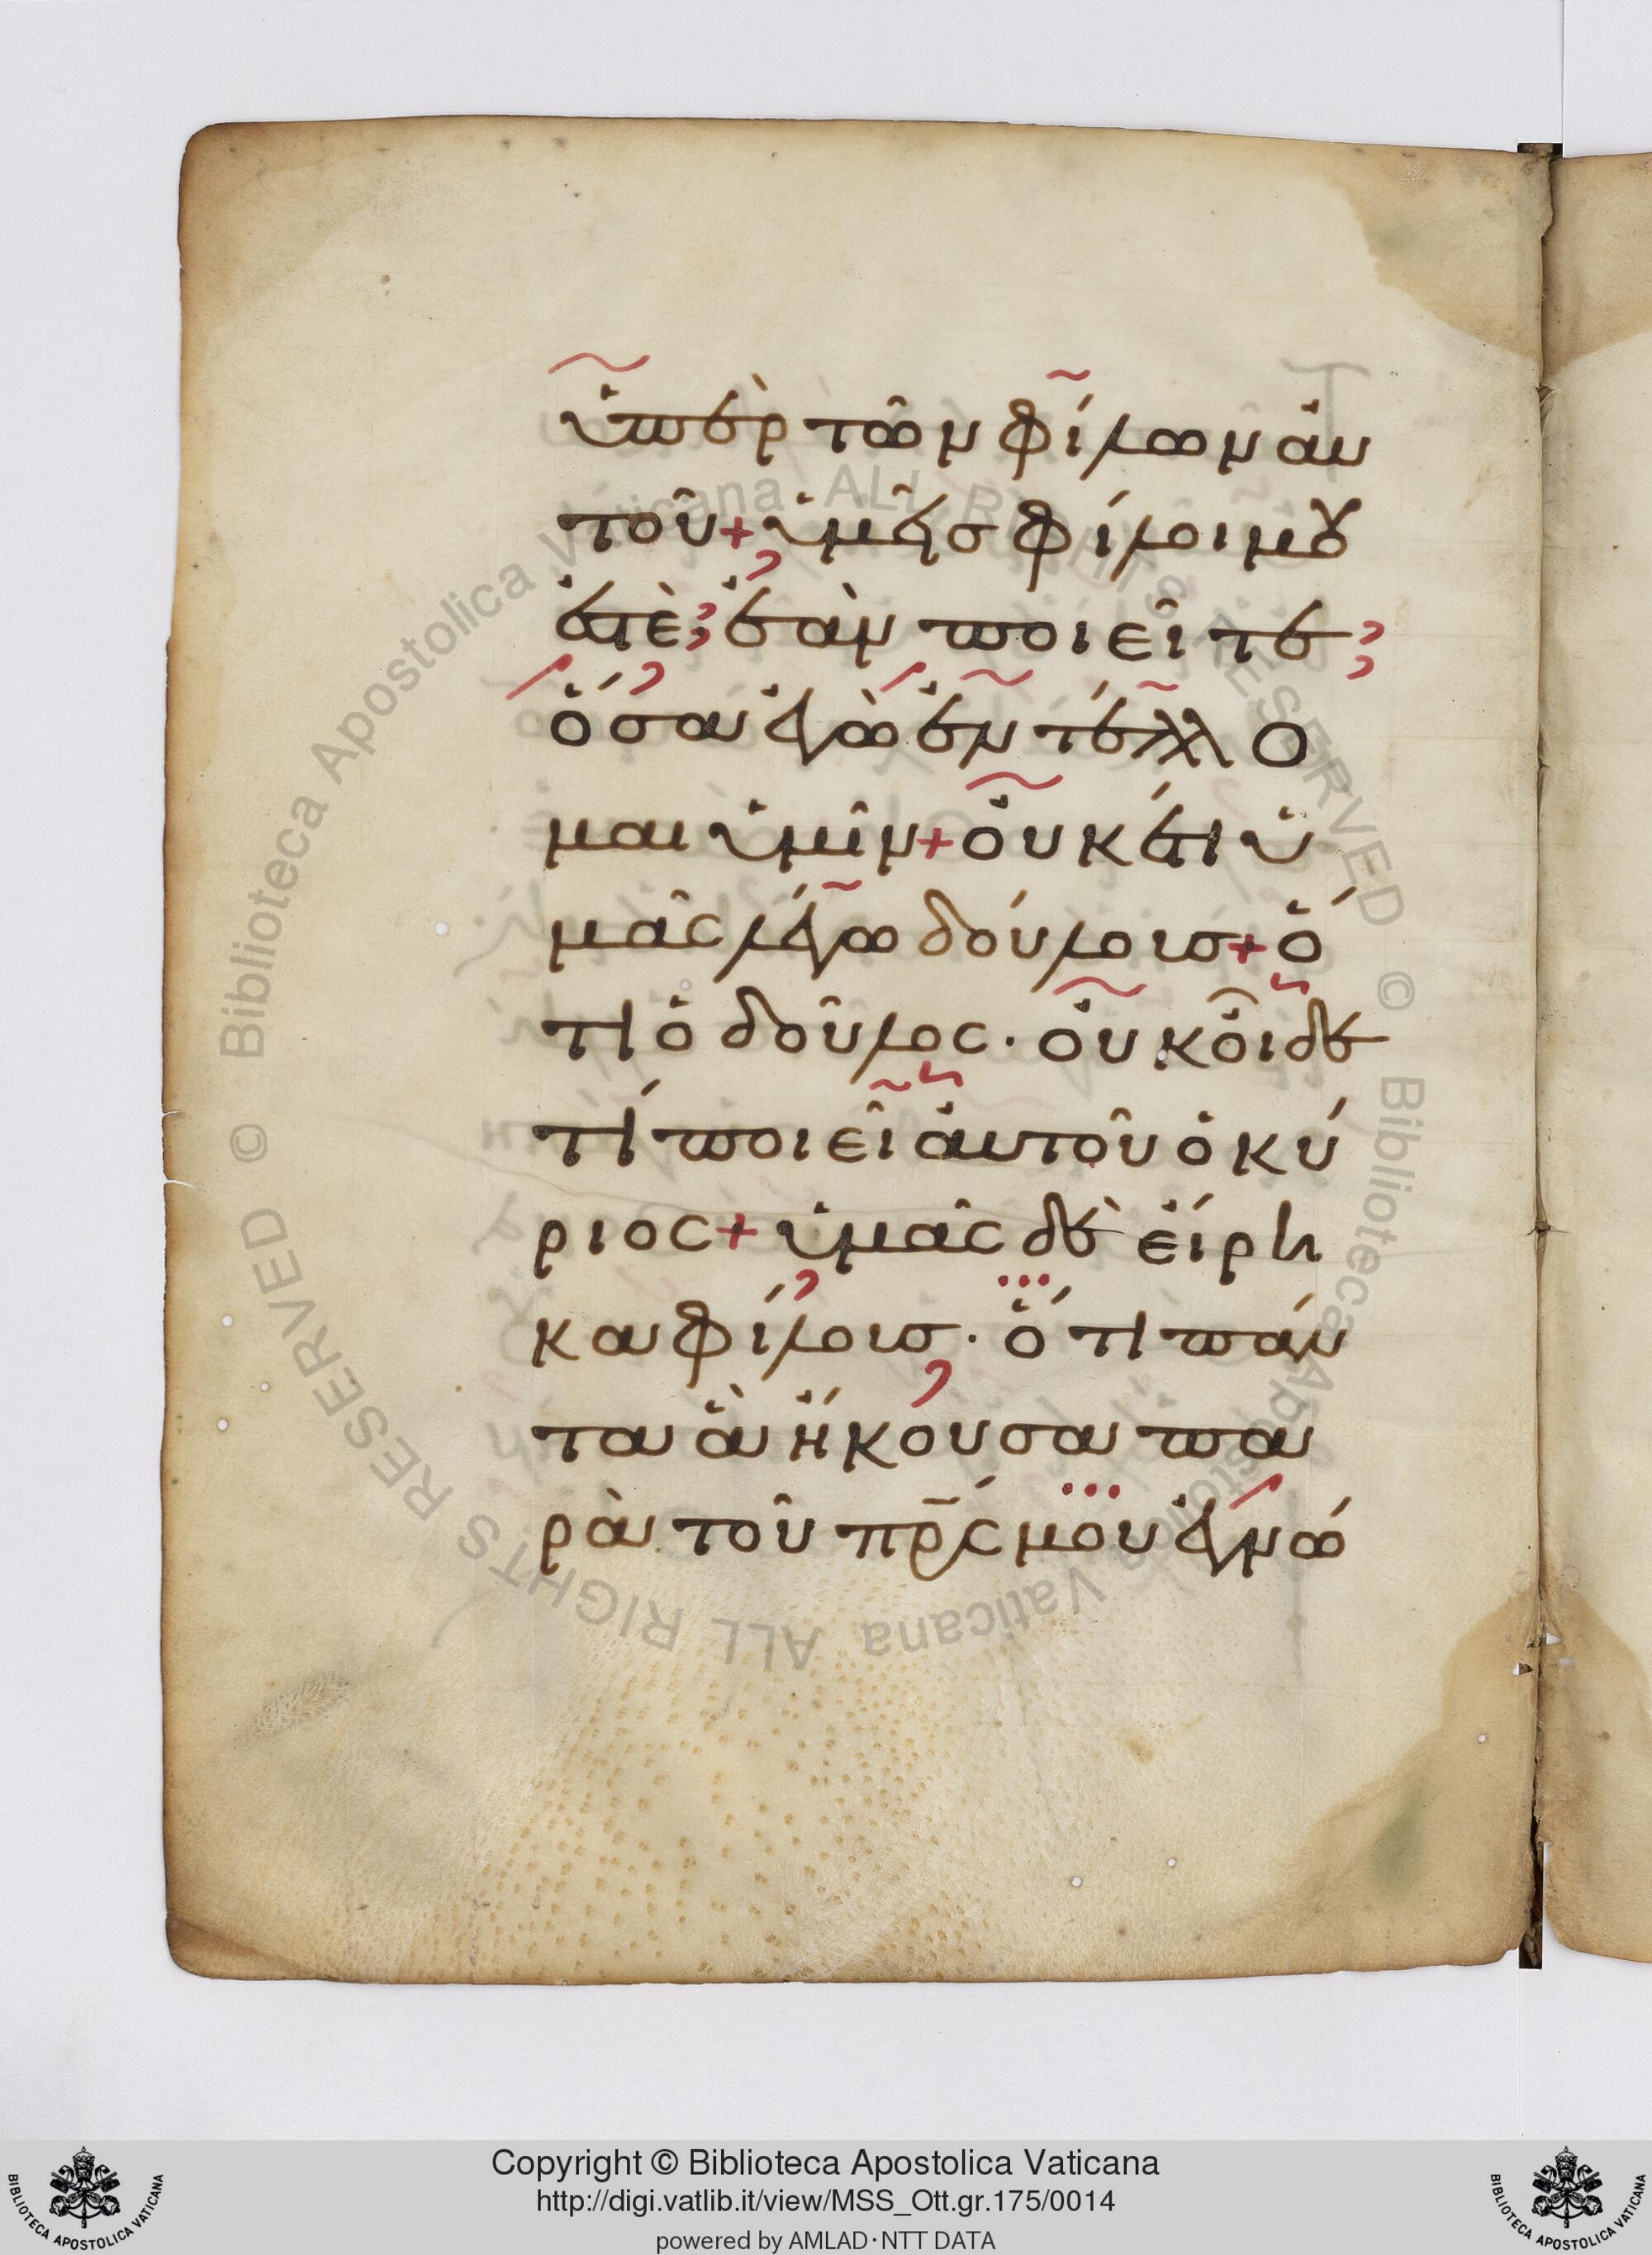 ὑπὲρ τῶν φίλων αὐ
τοῦ + ὑμεῖς φίλοι μου
ἐστὲ ἐὰν ποιεῖτε
ὅσα ἐγὼ ἐντέλλο
μαι ὑμῖν + οὐκ ἔτι ὑ
μᾶς λέγω δούλοις + ὅ
τι ὁ δοῦλος · οὐκ οἶδε
τί ποιεῖ αὐτοῦ ὁ κύ
ριος + ὑμᾶς δὲ εἴρη
κα φίλοις · ὅτι πάν
τα ἃ ἤκουσα πα
ρὰ τοῦ πρς μου ἐγνώ
Copyright © Biblioteca Apostolica Vaticana
http://digi.vatlib.it/view/MSS_Ott.gr.175/0014
powered by AMLAD·NTT DATA
© Biblioteca Apostolica Vaticana ALL RIGHTS RESERVED
© Biblioteca Apostolica Vaticana ALL RIGHTS RESERVED
BIBLIOTECA APOSTOLICA VATICANA
BIBLIOTECA APOSTOLICA VATICANA